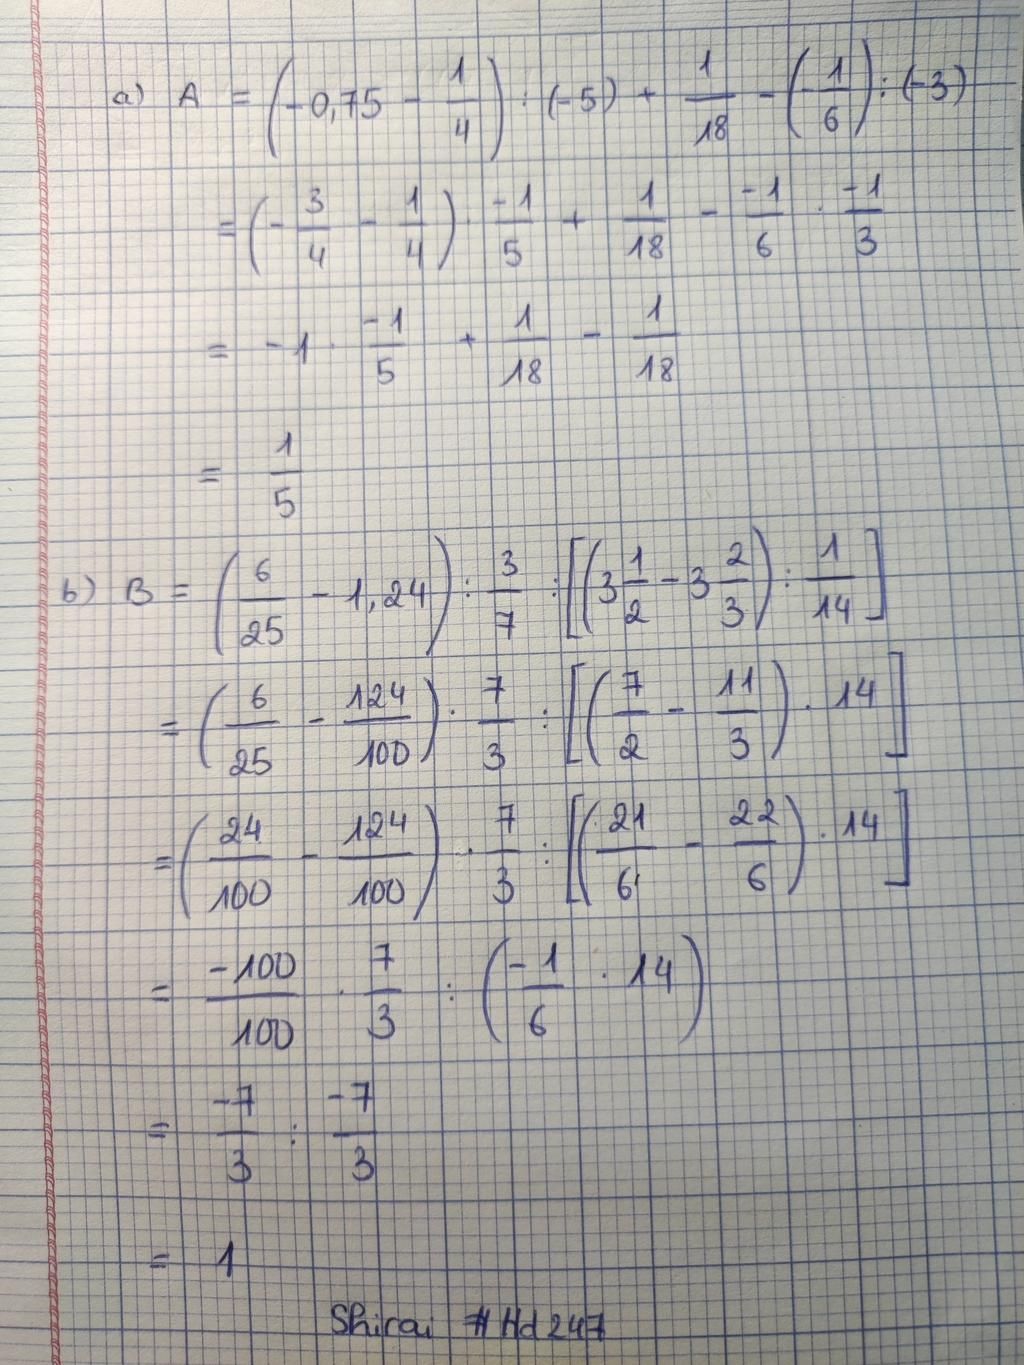 a) A = (-0,75 - 1/4) : (-5) + 1/18 - (-1/6) : (-3)
= (-3/4 - 1/4) · -1/5 + 1/18 - -1/6 · -1/3
= -1 · -1/5 + 1/18 - 1/18
= 1/5
b) B = (6/25 - 1,24) : 3/7 : [(3 1/2 - 3 2/3) : 1/14]
= (6/25 - 124/100) · 7/3 : [(7/2 - 11/3) · 14]
= (24/100 - 124/100) · 7/3 : [(21/6 - 22/6) · 14]
= -100/100 · 7/3 : (-1/6 · 14)
= -7/3 : -7/3
= 1
Shirai #Hd247